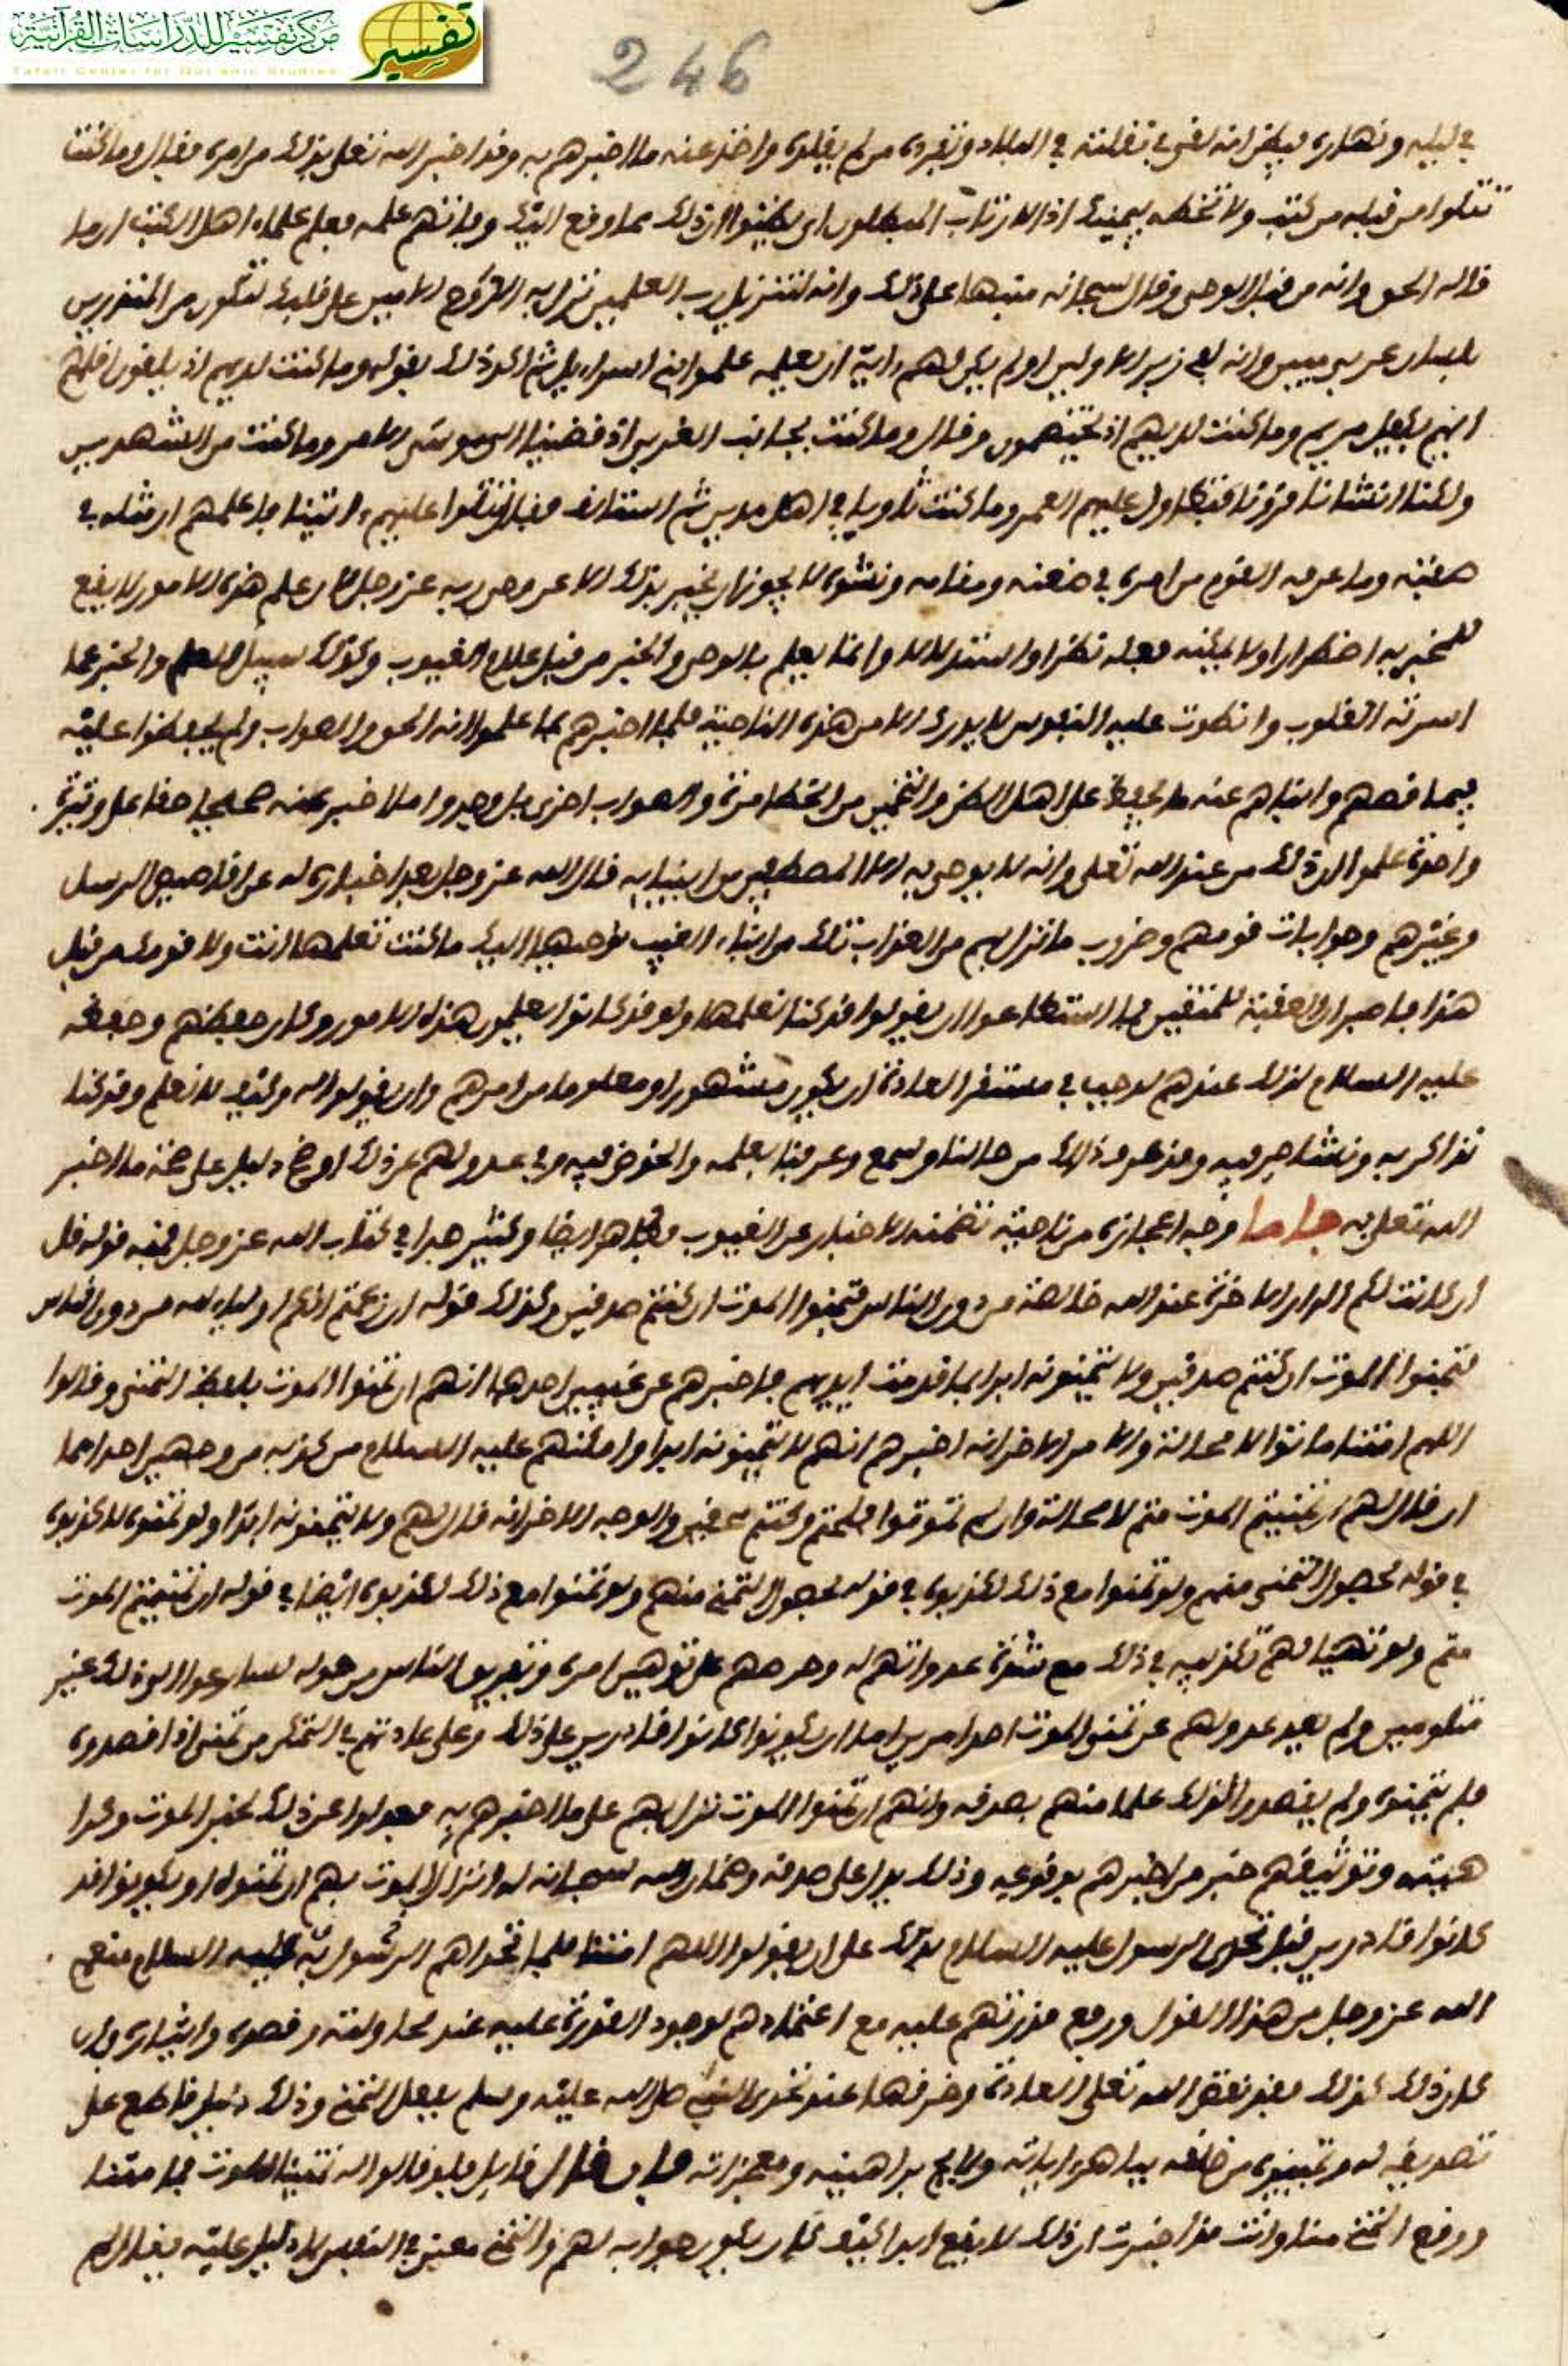 مركز تفسير للدراسات القرآنية
Tafsir Center for Qur'anic Studies
تفسير
246
في ليله ونهاره فيظن انه لقي في تقلبه في البلاد وتفرده من لم يلقوه واخذ عنه ما اخبرهم به وقد اخبر الله تعلى بذلك من امره فقال وما كنت
تتلوا من قبله من كتب ولا تخطه بيمينك اذا لارتاب المبطلون اي يظنوا ان ذلك مما وقع اليك وفاتهم علمه فعلم علماء اهل الكتب ان ما
قاله الحق وانه من قبل الوحي وقال سبحانه منبها على ذلك وانه لتنزيل رب العلمين نزل به الروح الامين على قلبك لتكون من المنذرين
بلسان عربي مبين وانه لفي زبر الاولين اولم يكن لهم ءاية ان يعلمه علموا بني اسراءيل ثم اكد ذلك بقوله وما كنت لديهم اذ يلقون اقلمهم
ايهم يكفل مريم وما كنت لديهم اذ يختصمون وقال وما كنت بجانب الغربي اذ قضينا الى موسى الامر وما كنت من الشهدين
ولكنا انشانا قرونا فتطاول عليهم العمر وما كنت ثاويا في اهل مدين ثم استانف فقال تتلوا عليهم ءايتنا فاعلمهم ان مثله في
صفته وما عرفه القوم من امره في ظعنه ومقامه ونشوه لا يجوز ان يخبر بذلك الا عن وحي ربه عز وجل لان علم هذه الامور لا يقع
للمخبر به اضطرارا ولا يمكنه فعله نظرا واستدلالا وانما يعلم بالوحي والخبر من قبل علام الغيوب وكذلك سبيل العلم والخبر عما
اسرته القلوب وانطوت عليه النفوس لا يدرك الا من هذه الناحية فلما اخبرهم بما علموا انه الحق والصواب ولم يحفظوا عليه
فيما قصهم وانباهم عنه ما يحفظ على اهل الظن والتخمين من الخطا مرة والصواب اخرى بل وجدوا ما اخبر عنه صحيحا حقا على وتيرة
واحدة علموا ان ذلك من عند الله تعلى وانه لا يوحى به الا الى المصطفين من انبيايه قال الله عز وجل بعد اخباره له عن اقاصيص الرسل
وغيرهم وجوابات قومهم وضروب ما نزل بهم من العذاب تلك من انباء الغيب نوحيها اليك ما كنت تعلمها انت ولا قومك من قبل
هذا فاصبر ان العقبة للمتقين فما استطاعوا ان يقولوا قد كنا نعلمها ولو قد كانوا يعلمون هذه الامور وكان حفظهم وحفظه
عليه السلام لذلك عندهم لوجب في مستقر العادة ان يكون مشهورا ومعلوما من امرهم وان يقولوا له وكيف لا نعلم وقد كنا
نذاكر به ونتشاجر فيه وقد عرف ذلك من حالنا وسمع وعرفنا بعلمه والخوض فيه وفي عدولهم عن ذلك اوضح دليل على صحة ما اخبر
الله تعلى به فاما وجه اعجازه من ناحية تضمنه الاخبار عن الغيوب فظاهر ايضا وكثير جدا في كتاب الله عز وجل فمنه قوله قل
ان كانت لكم الدار الاخرة عند الله خالصة من دون الناس فتمنوا الموت ان كنتم صدقين وكذلك قوله ان زعمتم انكم اولياء لله من دون الناس
فتمنوا الموت ان كنتم صدقين ولا يتمنونه ابدا بما قدمت ايديهم فاخبرهم عن غيبين احدهما انهم ان تمنوا الموت بلفظ التمني وقالوا
اللهم امتنا ماتوا لا محالة والامر الاخر انه اخبرهم انهم لا يتمنونه ابدا وامكنهم عليه السلام من تكذيبه من وجهين احداهما
ان قال لهم ان تمنيتم الموت متم لا محالة وان لم تموتوا فلجتم وكنتم محقين والوجه الاخر انه قال لهم ولا يتمنونه ابدا ولو تمنوه لاكذبوه
في قوله لحصول التمني منهم ولو تمنوا مع ذلك لكذبوه في قوله لحصول التمني منهم ولو تمنوا مع ذلك لكذبوه ايضا في قوله ان تمنيتم الموت
متم ولو تهيا لهم تكذيبه في ذلك مع شدة عداوتهم له وحرصهم على توهين امره وتفريق الناس من حوله لسارعوا الى ذلك غير
متلومين ولم يعد عدولهم عن تمني الموت احد امرين اما ان يكونوا كانوا قادرين على ذلك وعلى عادتهم في التمكن من تمني اذا قصدوه
فلم يتمنوه ولم يقصدوا لذلك علما منهم بصدقه وانهم ان تمنوا الموت نزل بهم على ما اخبرهم به فعدلوا عن ذلك
وتوثيقهم خبر من اخبرهم بوقوعه وذلك يدل على صدقه وضمان الله سبحانه له انزال الموت بهم ان تمنوه او يكونوا قد
كانوا قادرين قبل تحدي الرسول عليه السلام بذلك على ان يقولوا اللهم امتنا فلما تحداهم الرسول به عليه السلام منعهم
الله عز وجل من هذا القول ورفع قدرتهم عليه مع اعتمادهم لوجود القدرة عليه عند محاولته وقصده وايثاره وان
كان ذلك كذلك فقد نقض الله تعلى العادة وخرقها عند تحدي النبي صلى الله عليه وسلم بفعل التمني وذلك دليل قاطع على
تصديقه له وتمييزه من خلقه بباهر اياته ولايح براهينه ومعجزاته فان قال قايل فلو قالوا له تمنينا الموت فما متنا
ووقع التمني منا وانت قد اخبرت ان ذلك لا يقع ابدا كيف كان يكون جوابه لهم والتمني معنى في النفس لا دليل عليه فيقال لهم